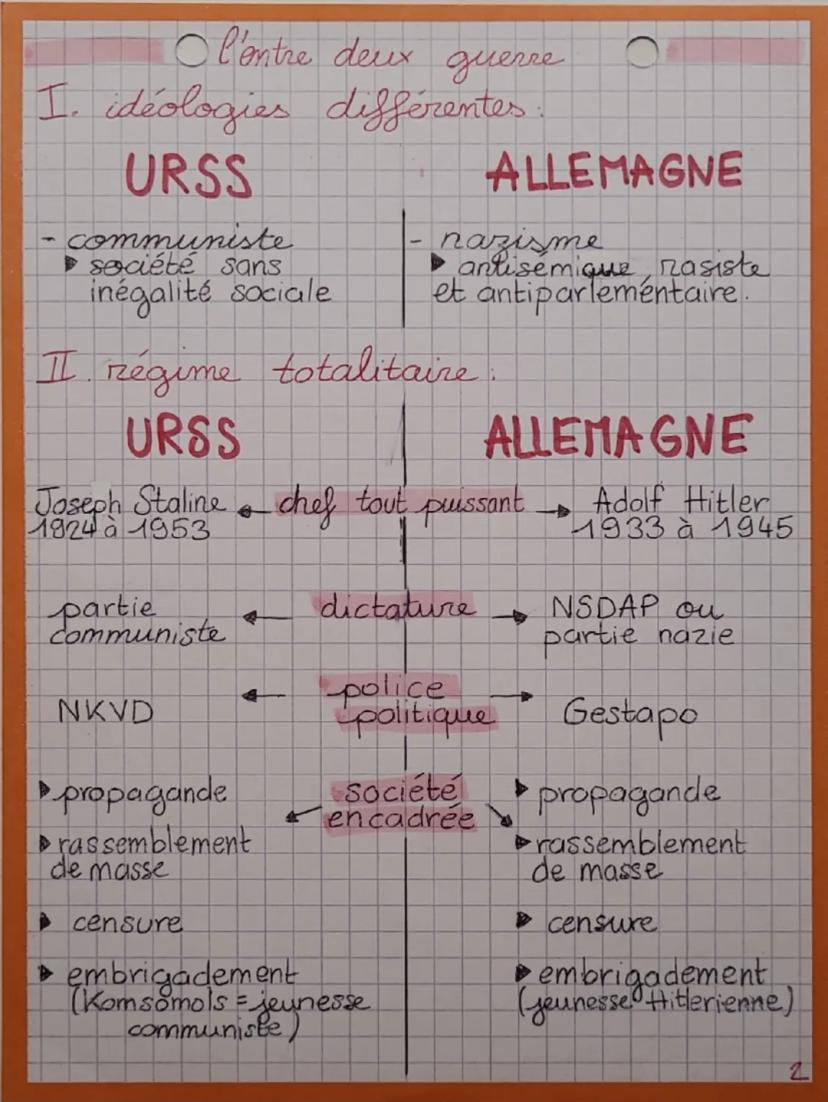 l'entre deux guerre
I. idéologies différentes :
URSS
ALLEMAGNE
- communiste
▸ société sans
inégalité sociale
- nazisme
▸ antisémique, rasiste
et antiparlementaire.
II. régime totalitaire :
URSS
ALLEMAGNE
Joseph Staline ← chef tout puissant → Adolf Hitler
1924 à 1953
1933 à 1945
partie ← dictature → NSDAP ou
communiste
partie nazie
NKVD ← police → Gestapo
politique
société
encadrée
▸ propagande
▸ rassemblement
de masse
▸ censure
▸ embrigadement
(Komsomols = jeunesse
communiste)
▸ propagande
▸ rassemblement
de masse
▸ censure
▸ embrigadement
(jeunesse Hitlerienne)
2